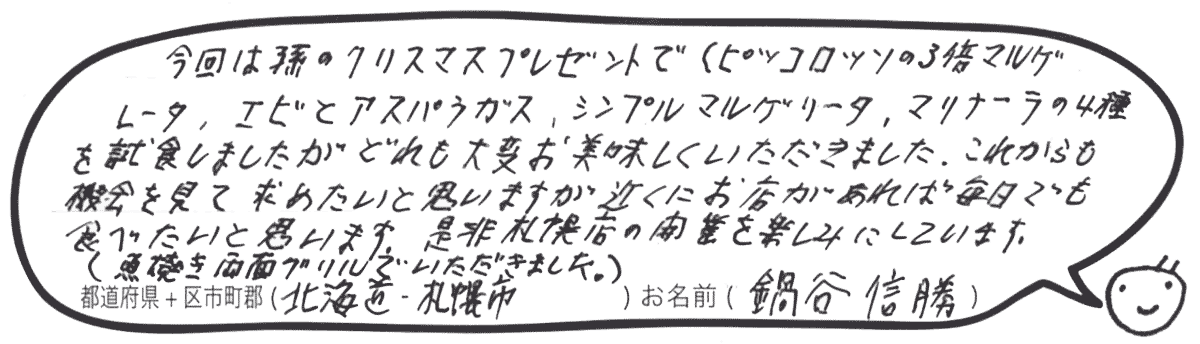 今回は孫のクリスマスプレゼントで(ピッコロッソの3倍マルゲ
レータ,エビとアスパラガス,シンプルマルゲリータ,マリナーラの4種
を試食しましたがどれも大変お美味しくいただきました.これからも
機会を見て求めたいと思いますが近くにお店があれば毎日でも
食べたいと思います.是非札幌店の開業を楽しみにしています.
(魚焼き両面グリルでいただきました。)
都道府県+区市町郡(北海道-札幌市)お名前(鍋谷信勝)